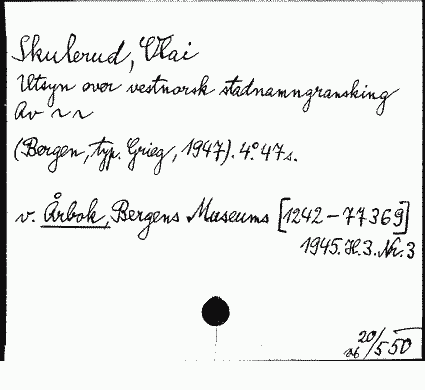 Skulerud, Olai
Utsyn over vestnorsk stadnamngransking
Av ~ ~
(Bergen, typ. Grieg, 1947). 4º. 47 s.
v. Årbok, Bergens Museums [1242-77369]
1945. H. 3. Nr. 3
20/5 50